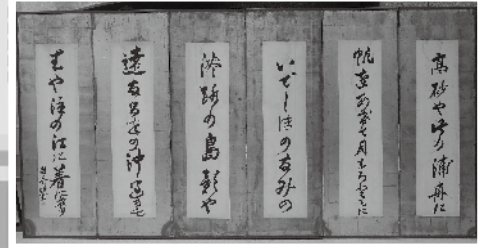 高砂や此の浦舟に
帆をあげて月もろともに
いでしほのなみの
淡路の島影や
遠く鳴尾の沖過ぎて
はや住の江に着にけり